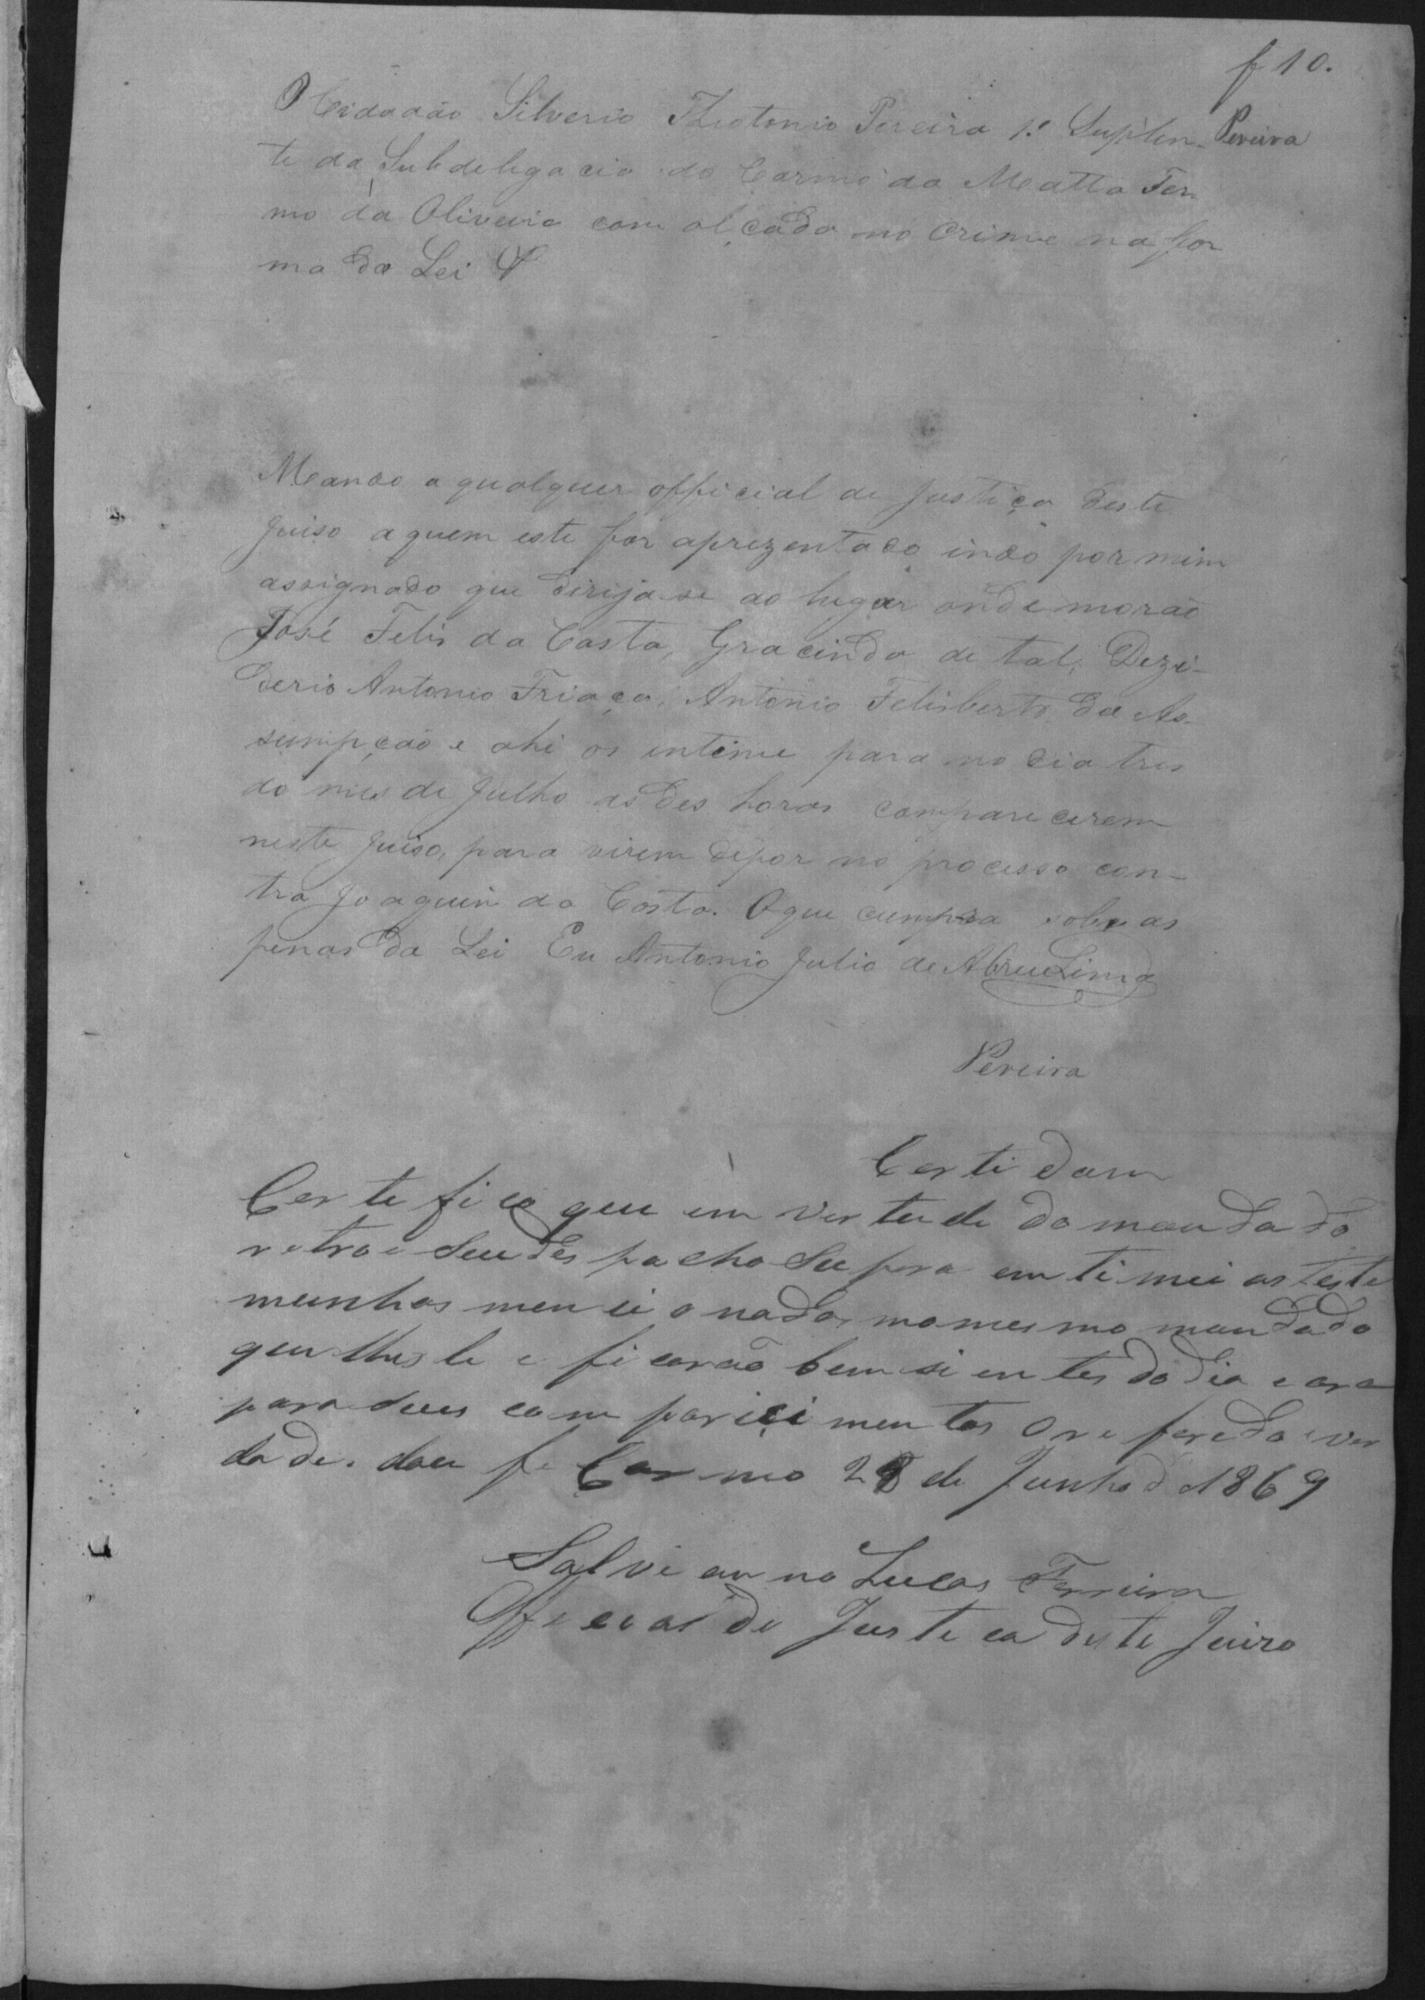 f 10.
O Cidadão Silverio Theotonio Pereira 1º Suplen- Pereira
te da Subdelegacia do Carmo da Matta Ter
mo da Oliveira com alçada no Crime na for
ma da Lei
Mando a qualquer official de Justiça deste
Juiso a quem este for aprezentado indo por mim
assignado que dirija-se ao lugar onde morão
José Felis da Costa, Gracindo de tal, Dezi-
derio Antonio Friaça, Antonio Felisberto da As-
sumpção e ahi os intime para no dia tres
do mes de Julho as des horas comparecerem
neste Juiso, para virem depor no processo con-
tra Joaquim da Costa. O que cumpra sobre as
penas da Lei Eu Antonio Julio de Abreu Lima
Pereira
Certidam
Certefico que em vertude do mandado
retro e seu despacho supra emtimei as teste
munhas mencionadas no mesmo mandado
que lhes le e ficarão bem sientes do dia e ora
para seus comparicimentos O referedo e ver
dade. dou fe Carmo 28 de Junho d 1869
Salvianno Lucas Ferreira
Offecial de Justeca deste Juizo